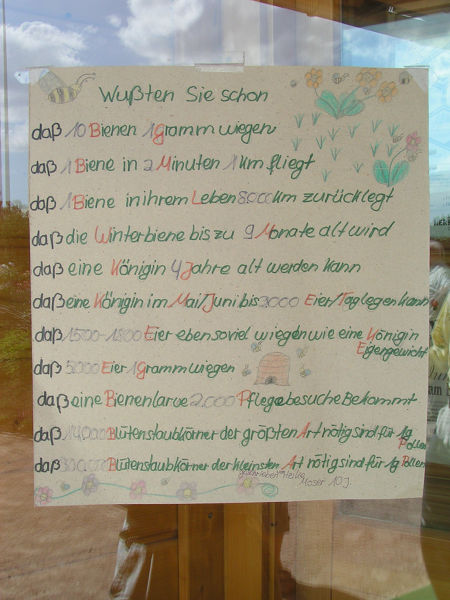 Wußten Sie schon
daß 10 Bienen 1gramm wiegen
daß 1 Biene in 2 Minuten 1km fliegt
daß 1 Biene in ihrem Leben 8000km zurücklegt
daß die Winterbiene bis zu 9 Monate alt wird
daß eine Königin 4 Jahre alt werden kann
daß eine Königin im Mai/Juni bis 3000 Eier/Tag legen kann
daß 1500-1800 Eier ebensoviel wiegen wie eine Königin
Eigengewicht
daß 5000 Eier 1gramm wiegen
daß eine Bienenlarve 2.000 Pflegebesuche Bekommt
daß 14.000 Blütenstaubkörner der größten Art nötig sind für 1g
Pollen
daß Blütenstaubkörner der kleinsten Art nötig sind für 1g Pollen
Moser 10 J.